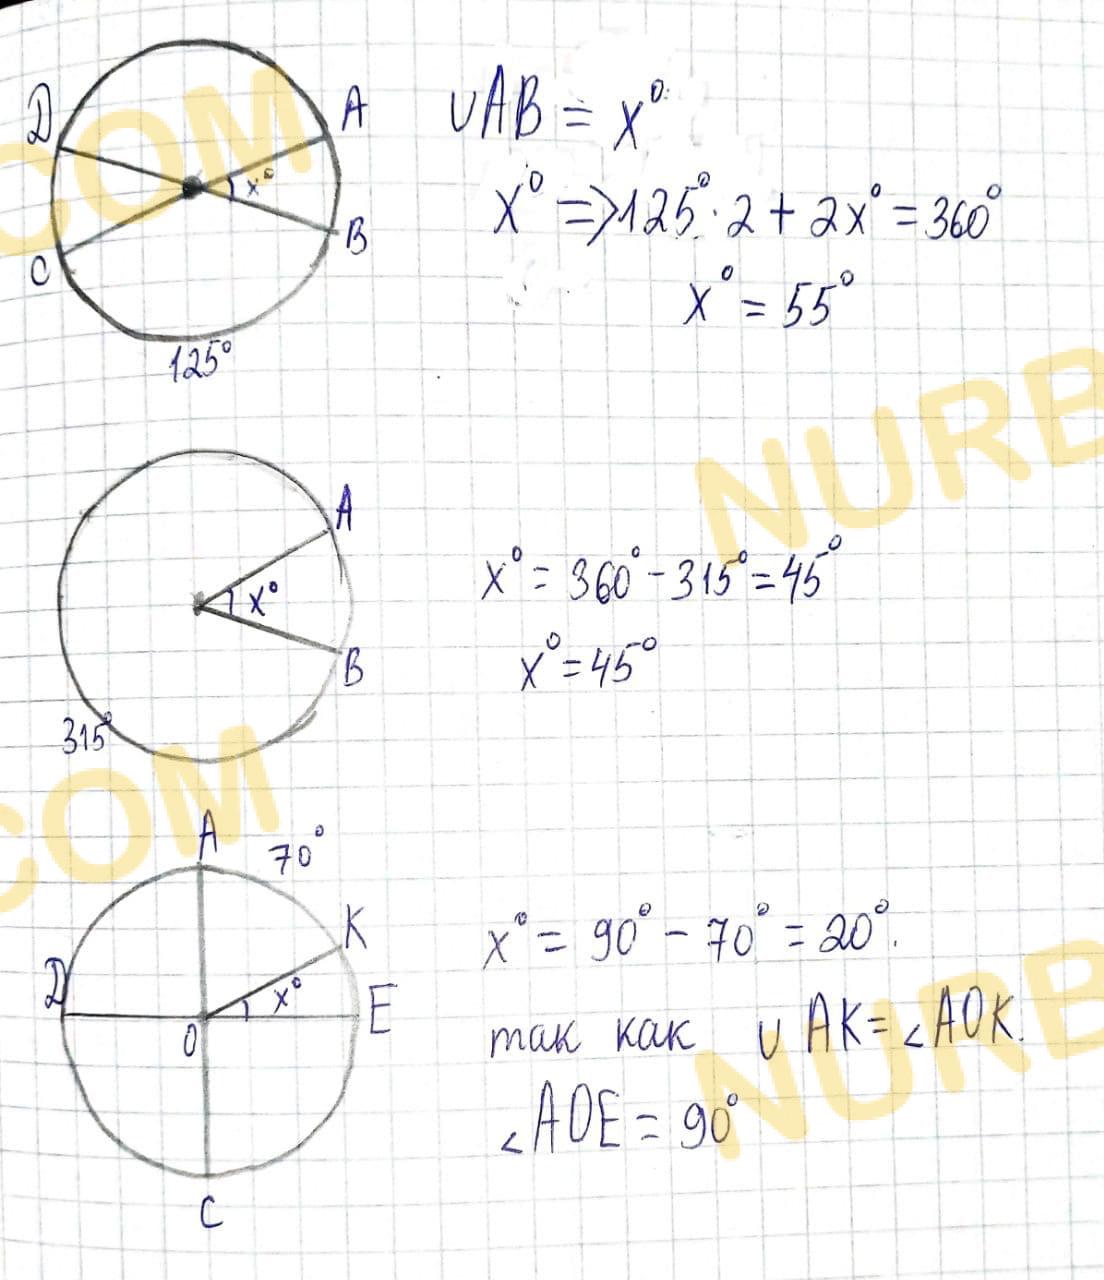 D
A
x°
B
C
125°
∪AB = x°
x° => 125° · 2 + 2x° = 360°
x° = 55°
A
x°
B
315°
x° = 360° - 315° = 45°
x° = 45°
A
70°
K
D
x°
E
O
C
x° = 90° - 70° = 20°.
так как ∪ AK = ∠AOK.
∠AOE = 90°
COM
NURB
COM
NURB